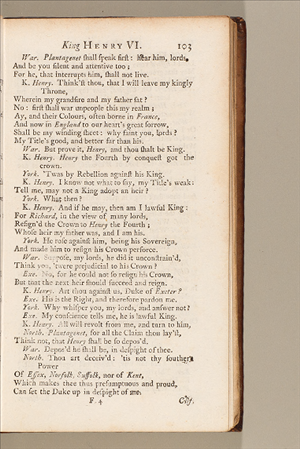 King HENRY VI. 103
War. Plantagenet ſhall ſpeak firſt: hear him, lords,
And be you ſilent and attentive too;
For he, that interrupts him, ſhall not live.
K. Henry. Think'ſt thou, that I will leave my kingly
Throne,
Wherein my grandſire and my father ſat?
No: firſt ſhall war unpeople this my realm;
Ay, and their Colours, often borne in France,
And now in England to our heart's great ſorrow,
Shall be my winding ſheet: why faint you, lords?
My Title's good, and better far than his.
War. But prove it, Henry, and thou ſhalt be King.
K. Henry. Henry the Fourth by conqueſt got the
crown.
York. 'Twas by Rebellion againſt his King.
K. Henry. I know not what to ſay, my Title's weak:
Tell me, may not a King adopt an heir?
York. What then?
K. Henry. And if he may, then am I lawful King:
For Richard, in the view of many lords,
Reſign'd the Crown to Henry the Fourth;
Whoſe heir my father was, and I am his.
York. He roſe againſt him, being his Sovereign,
And made him to reſign his Crown perforce.
War. Suppoſe, my lords, he did it unconſtrain'd,
Think you, 'twere prejudicial to his Crown?
Exe. No, for he could not ſo reſign his Crown,
But that the next heir ſhould ſucceed and reign.
K. Henry. Art thou againſt us, Duke of Exeter?
Exe. His is the Right, and therefore pardon me.
York. Why whiſper you, my lords, and anſwer not?
Exe. My conſcience tells me, he is lawful King.
K. Henry. All will revolt from me, and turn to him.
North. Plantagenet, for all the Claim thou lay'ſt,
Think not, that Henry ſhall be ſo depos'd.
War. Depos'd he ſhall be, in deſpight of thee.
North. Thou art deceiv'd: 'tis not thy ſouthern
Power
Of Eſſex, Norfolk, Suffolk, nor of Kent,
Which makes thee thus preſumptuous and proud,
Can ſet the Duke up in deſpight of me.
F 4 Cliff.